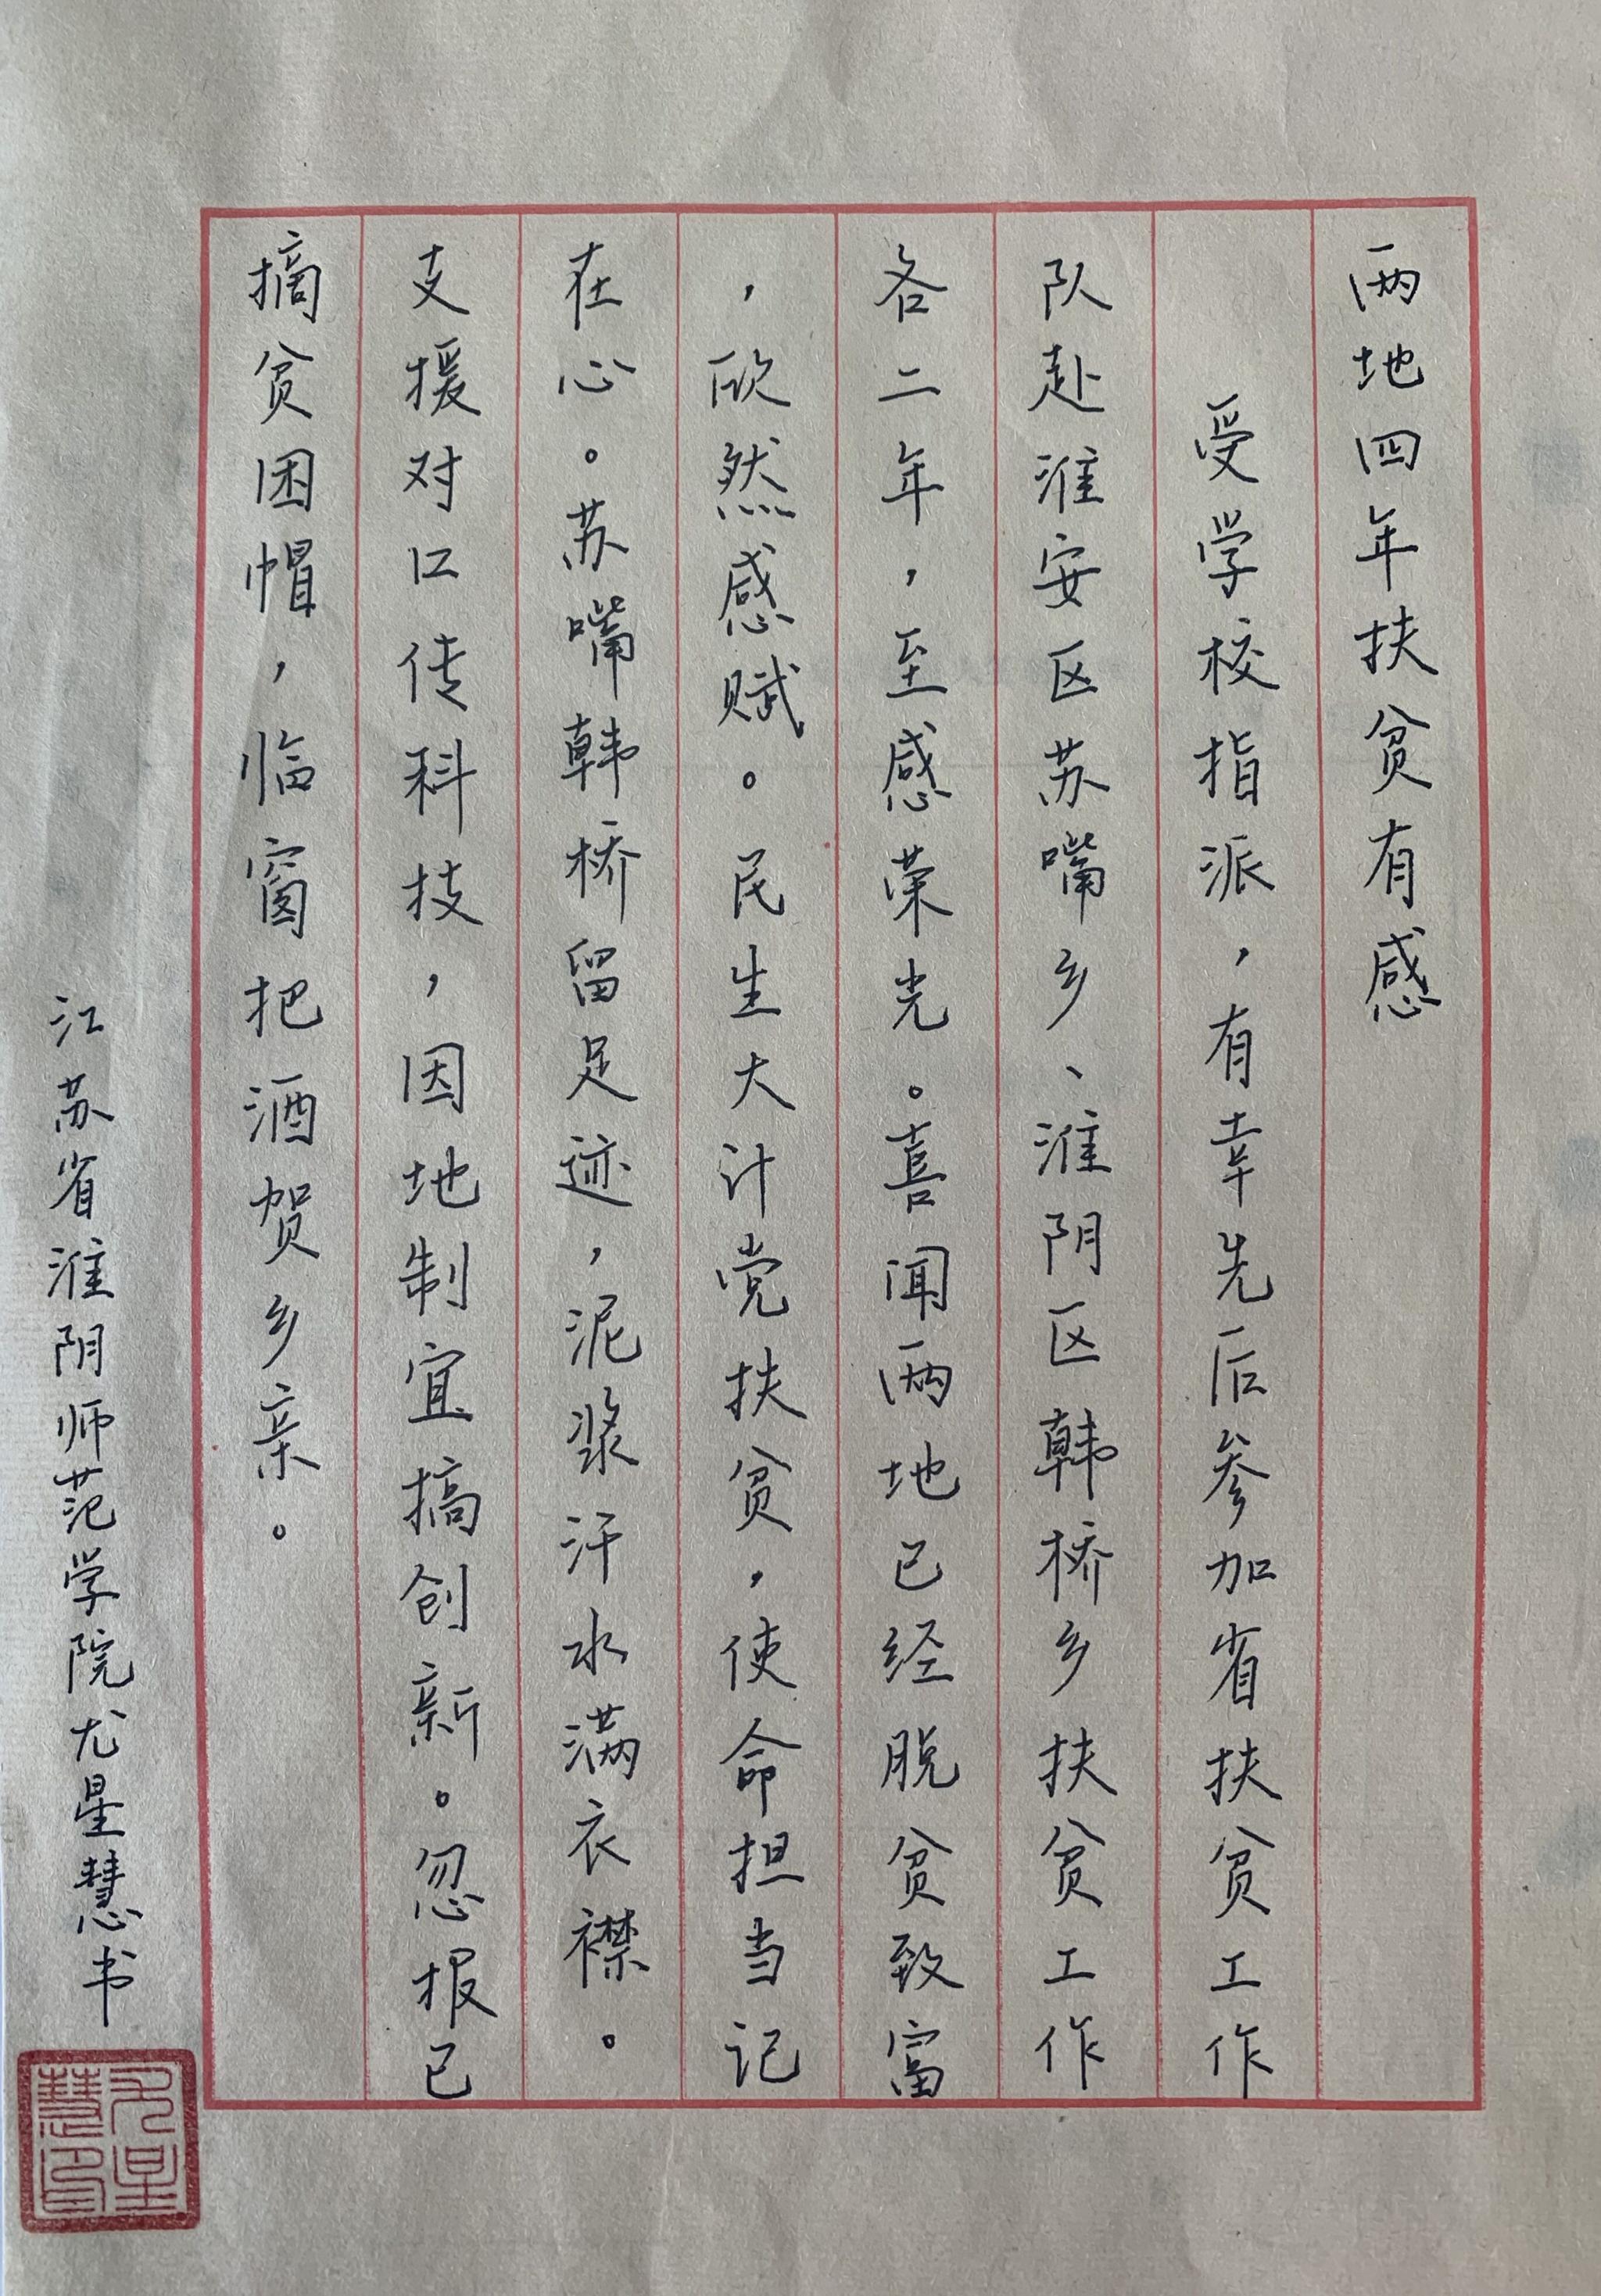 两地四年扶贫有感
受学校指派，有幸先后参加省扶贫工作
队赴淮安区苏嘴乡、淮阴区韩桥乡扶贫工作
各二年，至感荣光。喜闻两地已经脱贫致富
，欣然感赋。民生大计党扶贫，使命担当记
在心。苏嘴韩桥留足迹，泥浆汗水满衣襟。
支援对口传科技，因地制宜搞创新。忽报已
摘贫困帽，临窗把酒贺乡亲。
江苏省淮阴师范学院尤星慧书
尤星慧印